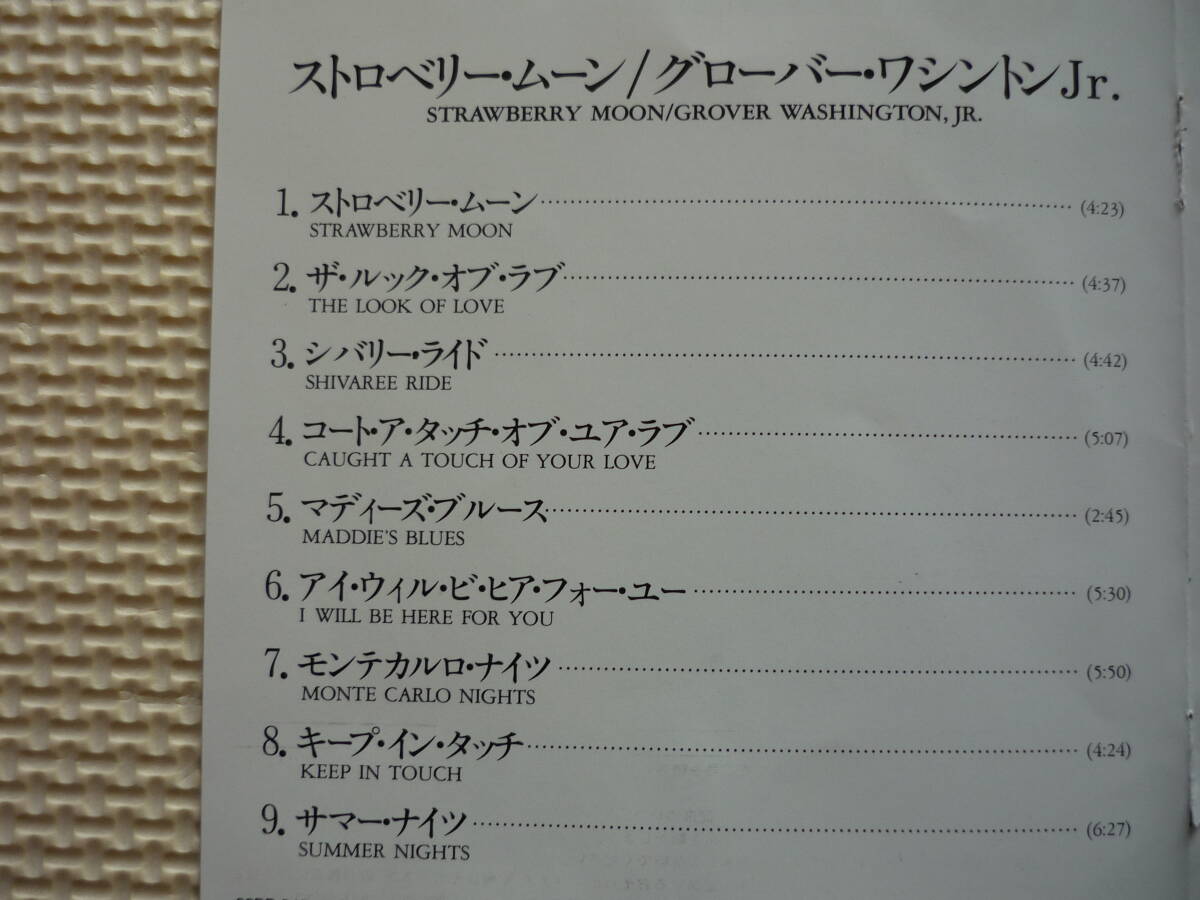 ストロベリー・ムーン/グローバー・ワシントンJr.
STRAWBERRY MOON/GROVER WASHINGTON, JR.
1. ストロベリー・ムーン (4:23)
STRAWBERRY MOON
2. ザ・ルック・オブ・ラブ (4:37)
THE LOOK OF LOVE
3. シバリー・ライド (4:42)
SHIVAREE RIDE
4. コート・ア・タッチ・オブ・ユア・ラブ (5:07)
CAUGHT A TOUCH OF YOUR LOVE
5. マディーズ・ブルース (2:45)
MADDIE'S BLUES
6. アイ・ウィル・ビ・ヒア・フォー・ユー (5:30)
I WILL BE HERE FOR YOU
7. モンテカルロ・ナイツ (5:50)
MONTE CARLO NIGHTS
8. キープ・イン・タッチ (4:24)
KEEP IN TOUCH
9. サマー・ナイツ (6:27)
SUMMER NIGHTS